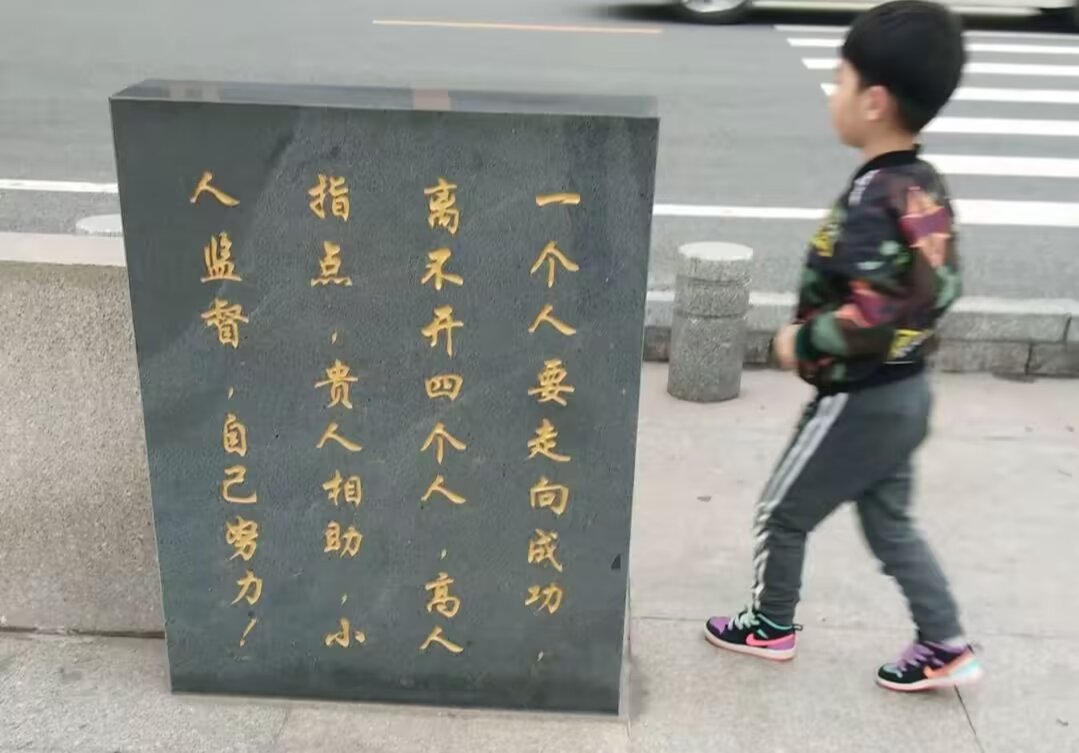 一个人要走向成功，
离不开四个人，高人
指点，贵人相助，小
人监督，自己努力！